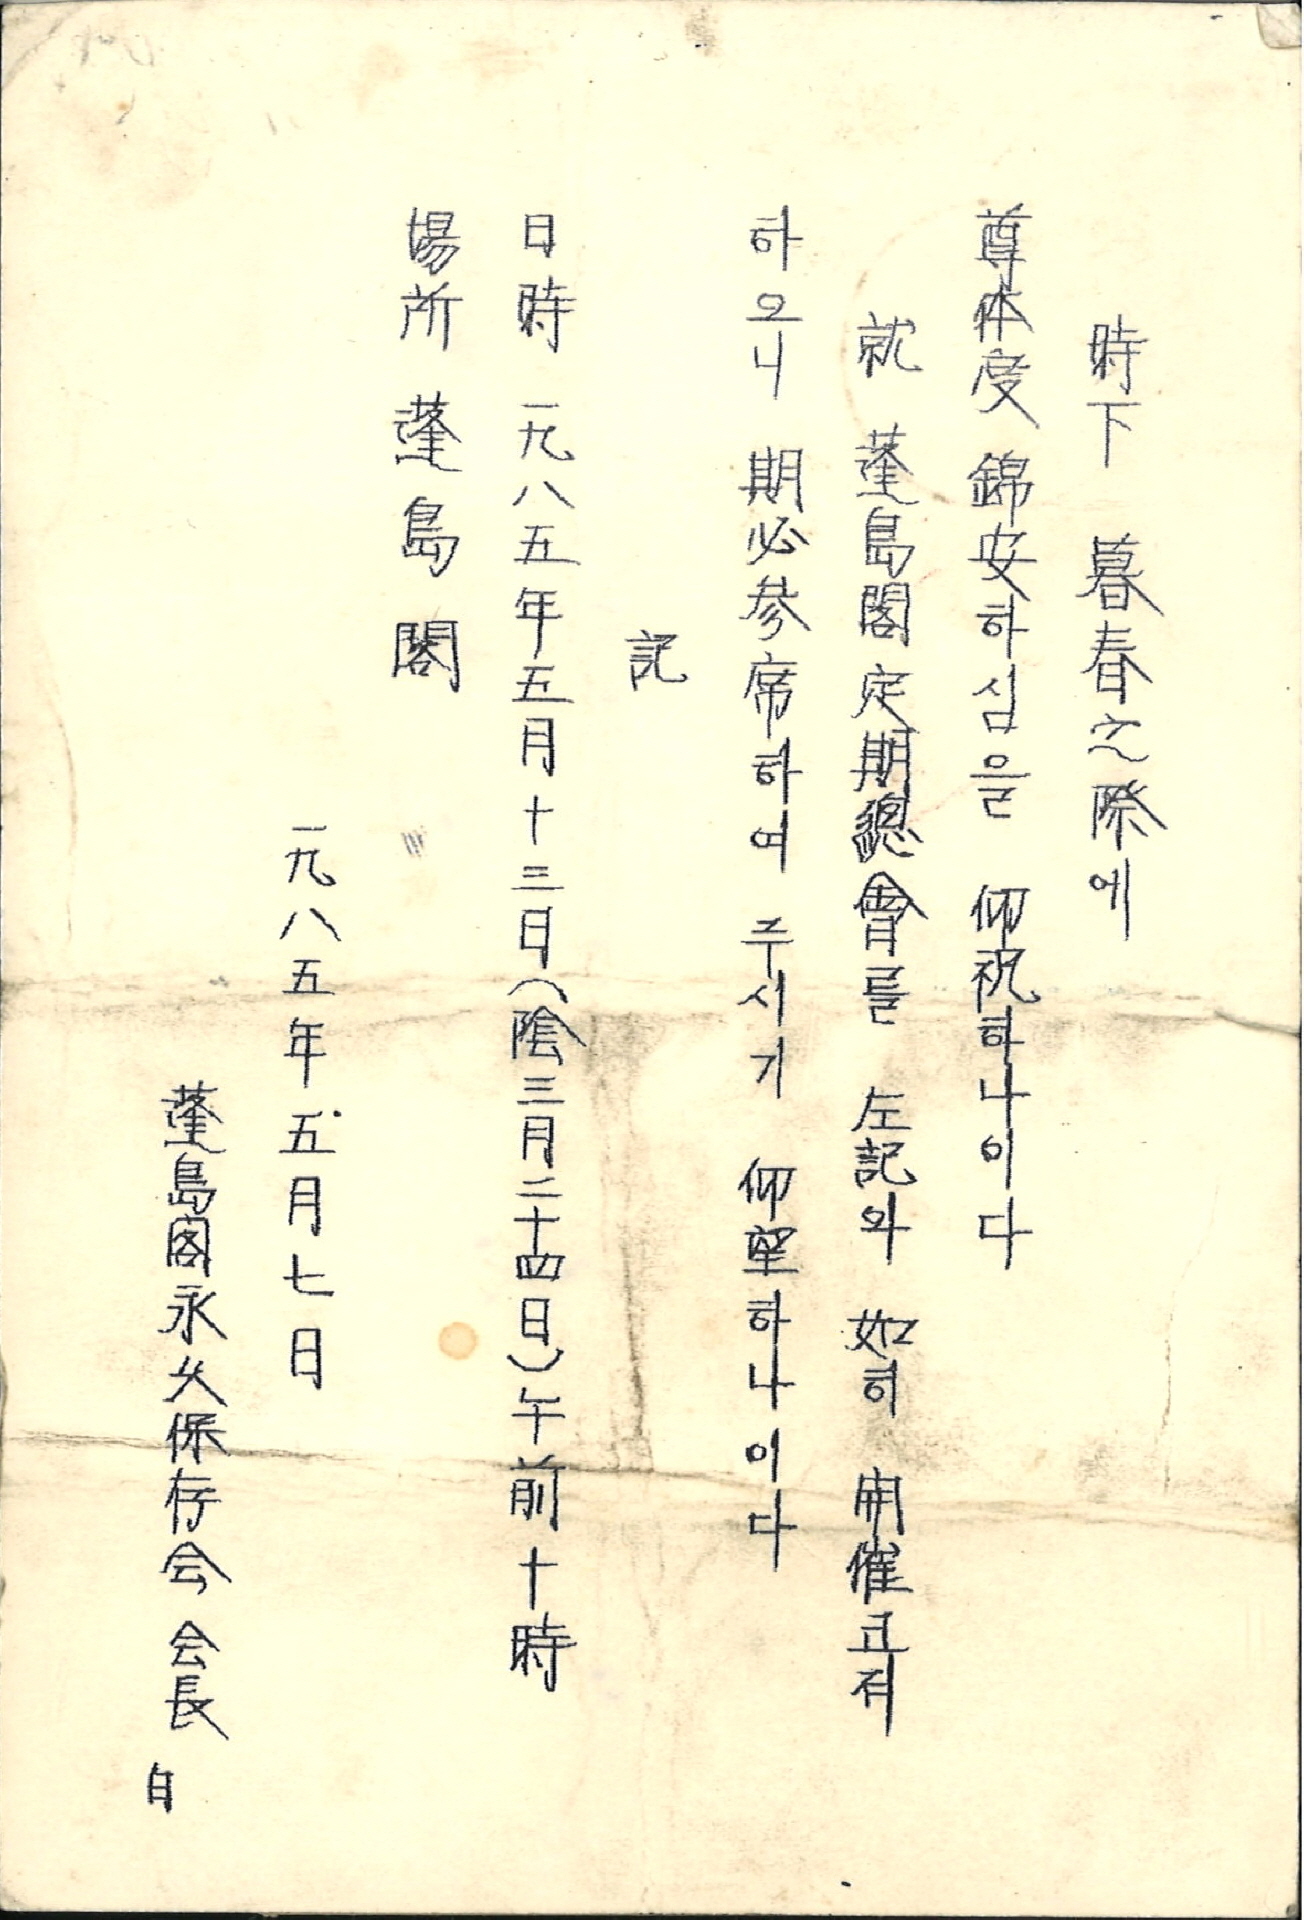 時下 暮春之際에
尊体度 錦安하심을 仰祝하나이다
就 蓬島閣定期總會를 左記와 如히 開催코저
하오니 期必參席하여 주시기 仰望하나이다
記
日時 一九八五年五月十三日(陰三月二十四日)午前十時
場所 蓬島閣
一九八五年五月七日
蓬島閣永久保存会 会長
白